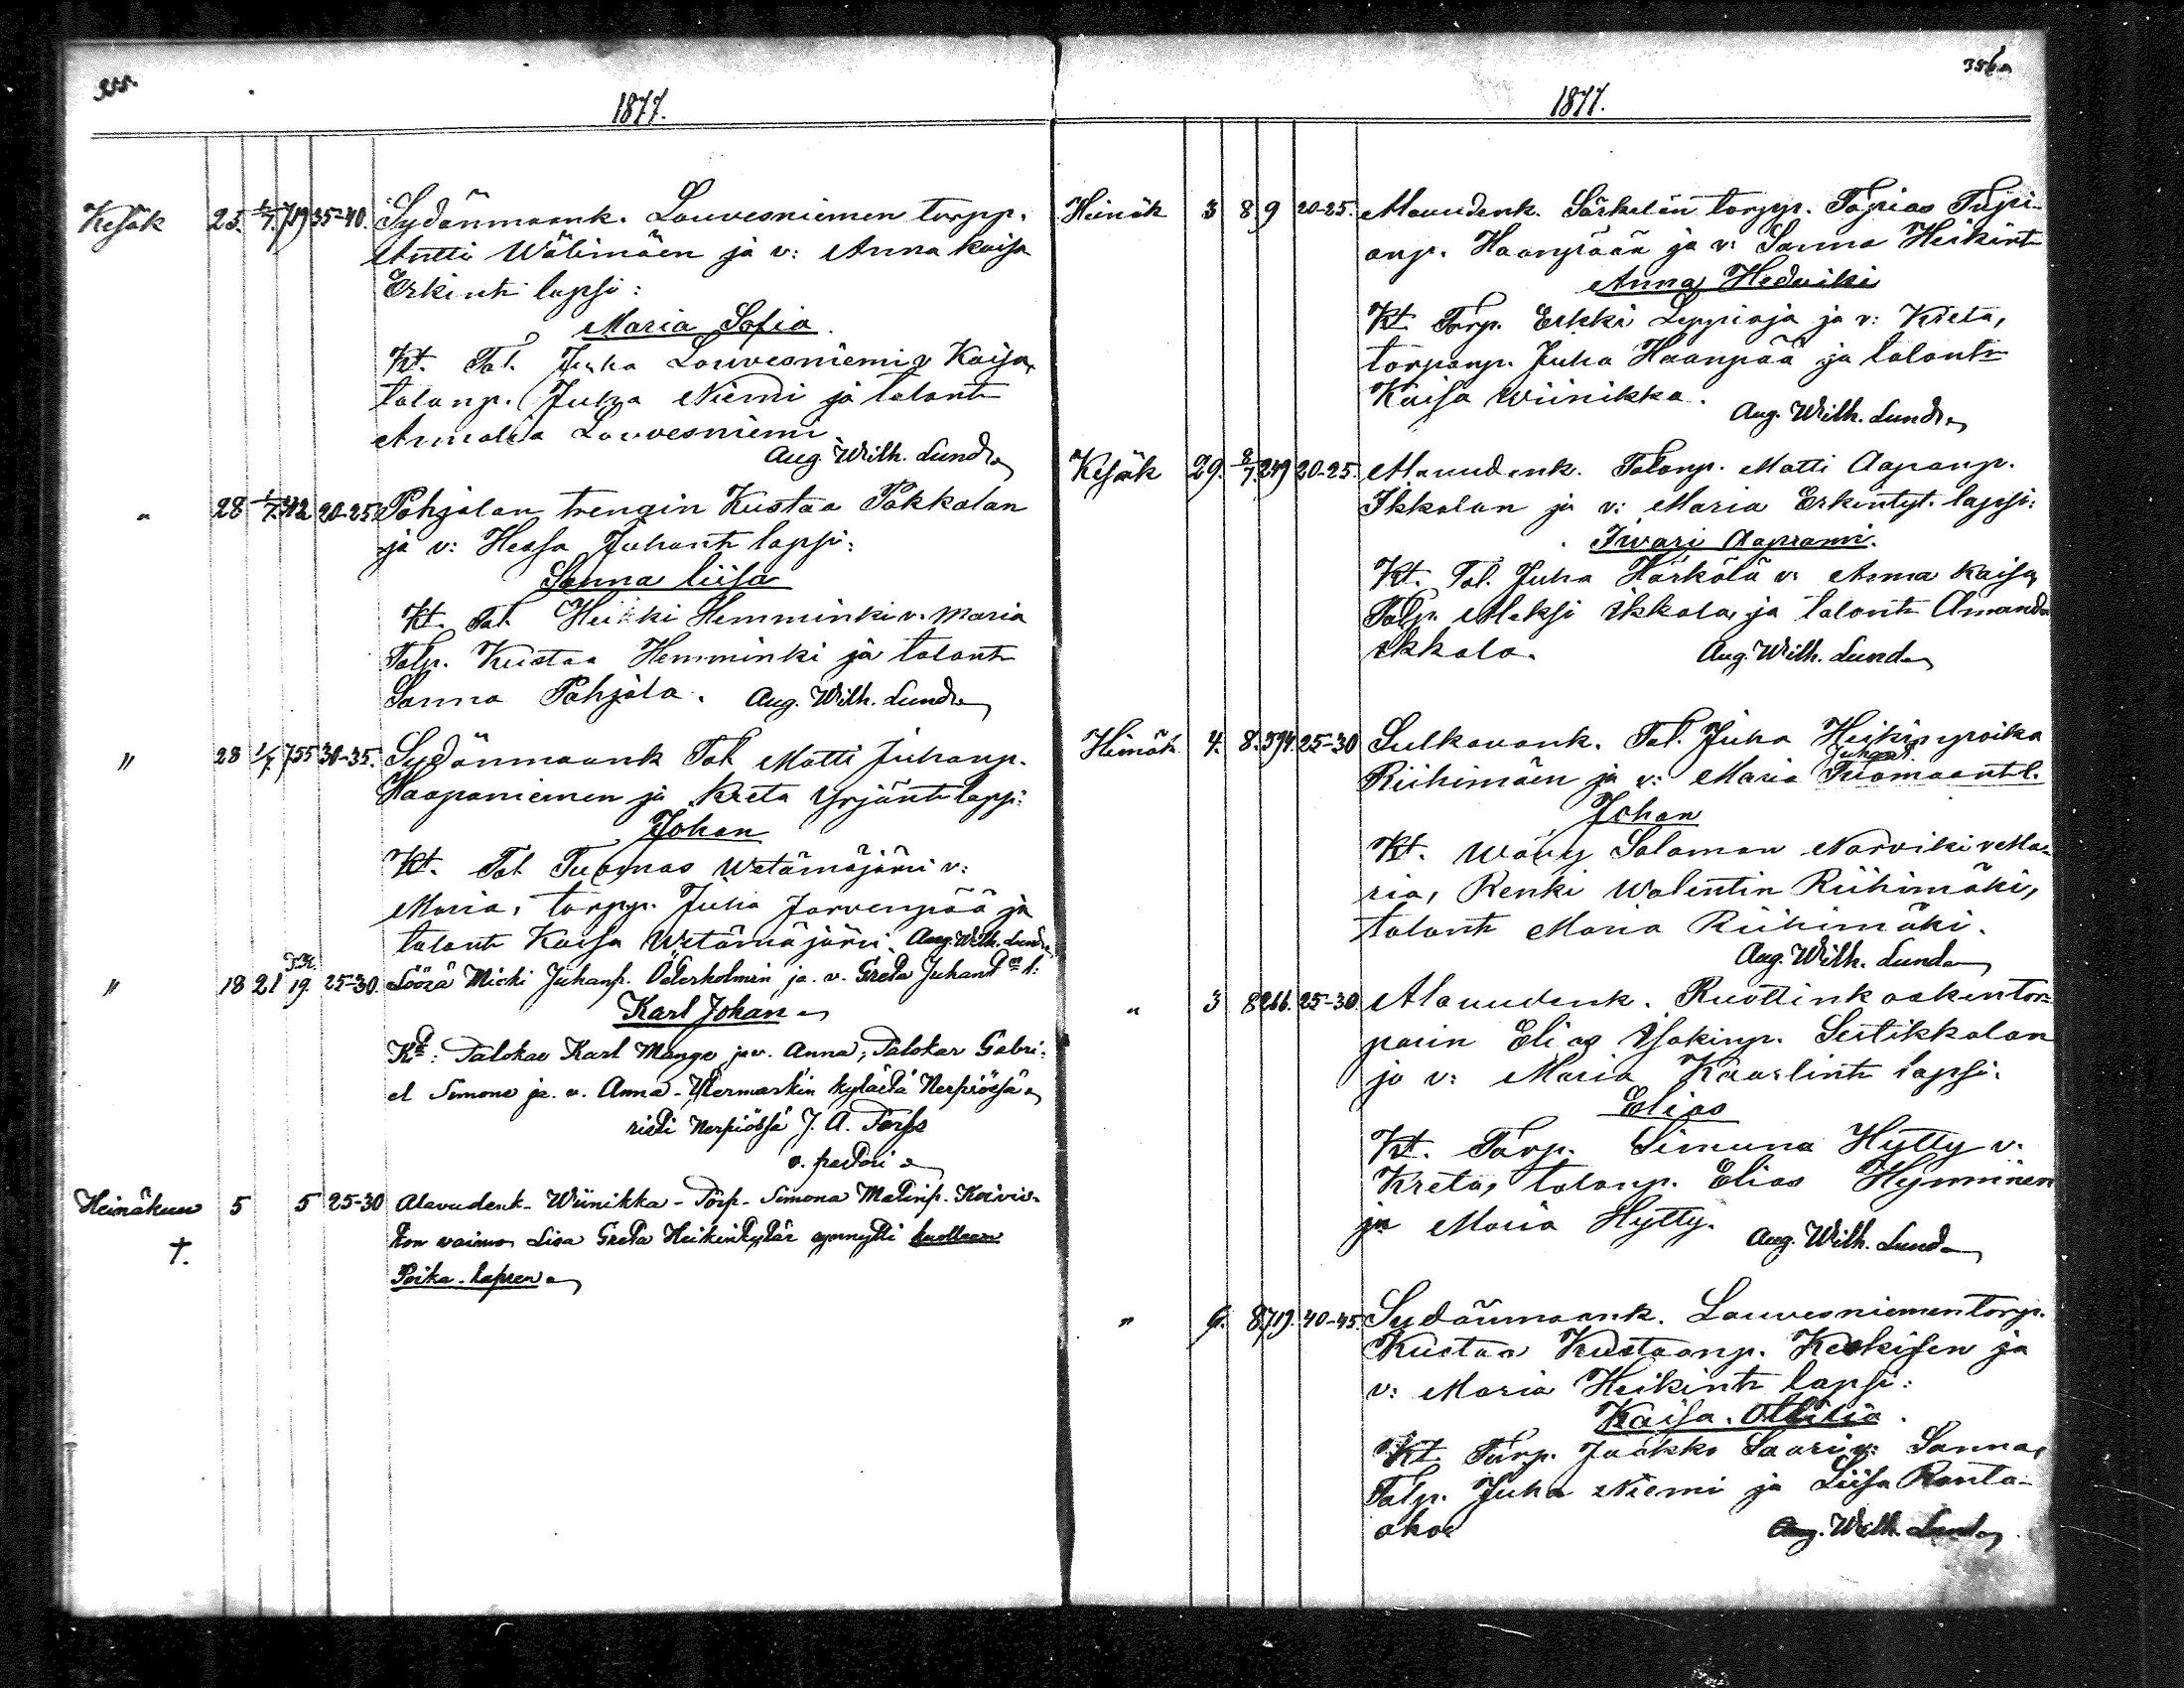 355.
1877.
Kesäk 25. 1/7. 719 35-40. Sydänmaank. Louvesniemen torpp.
Antti Wälimäen ja v: Anna Kaisa
Erkintr lapsi:
Maria Sofia.
Kt. Tal. Juha Louvesniemi v Kaisa,
talonp. Juha Niemi ja talontr
Annaliisa Louvesniemi.
Aug. Wilh. Lund
" 28 1/7. 20-25. Pohjolan trengin Kustaa Pakkalan
ja v: Hessa Juhantr lapsi:
Sanna Liisa
Kt. Tal. Heikki Hemminki v. Maria
Talp. Kustaa Hemminki ja talontr
Sanna Pohjola. Aug. Wilh. Lund
" 28 1/7. 755 30-35. Sydänmaank Tal Matti Juhanp.
Haapaniemen ja Kreta Yrjäntr lapsi:
Johan
Kt. Tal Tuomas Wetämäjärvi v:
Maria, torpp. Juha Jarvenpää ja
talontr Kaisa Wetämäjärvi. Aug. Wilh. Lund
" 18 21 19. 25-30. Löösä Micki Juhanp. Österholmin ja v. Greta Juhant l:
Karl Johan
Kt: Talokas Karl Mange ja v. Anna, Talokas Gabri-
el Simons ja v. Anna - Yttermarkin kylästä Nerpiössä
risti Nerpiössä J. A. Forss
v. pastori
Heinäkuu 5 5 25-30 Alavudenk - Wiinikka - Torp - Simona Matinp. Koivis-
ton vaimo Lisa Greta Heikintytär synnytti kuolleen
†.
Poika-lapsen
356
1877.
Heinäk 3 8 9 20-25. Alavudenk. Särkelän torpp. Tapias Tapi-
anp. Haanpään ja v: Sanna Heikintr
Anna Hedviki
Kt. Torp. Erkki Leppioja ja v: Kreta,
torpanp. Juha Haanpää ja talontr
Kaisa Wiinikka.
Aug. Wilh. Lund
Kesäk 29. 8/7. 249 20-25. Alavudenk. Talonp. Matti Aapranp.
Ikkalan ja v: Maria Erkintyt. lapsi:
Iivari Aaprami.
Kt. Tal. Juha Härkölä v: Anna Kaisa,
Talp. Aleksi Ikkala, ja talontr Amanda
Ikkala. Aug. Wilh. Lund
Heinäk 4. 8. 594. 25-30 Sulkavank. Tal. Juha Heikinpoika
Juhant.
Riihimäen ja v: Maria Tuomaant l.
Johan
Kt. Wävy Saloman Narviki v Ma-
ria, Renki Walentin Riihimäki,
talontr Maria Riihimäki.
Aug. Wilh. Lund
" 3 8 266. 25-30. Alavudenk. Ruottinkosken tor-
parin Elias Isakinp. Seitikkalan
ja v: Maria Kaarlintr lapsi:
Elias
Kt. Torp. Simuna Hytty v.
Kreta, talonp. Elias Hynninen
ja Maria Hytty. Aug. Wilh. Lund
" 6. 8 719. 40-45. Sydänmaank. Louvesniemen torp.
Kustaa Kustaanp. Keskisen ja
v: Maria Heikintr lapsi:
Kaisa Otilia.
Kt. Torp. Jaakko Saari v: Sanna,
Talp. Juha Niemi ja Liisa Ranta-
aho
Aug. Wilh. Lund